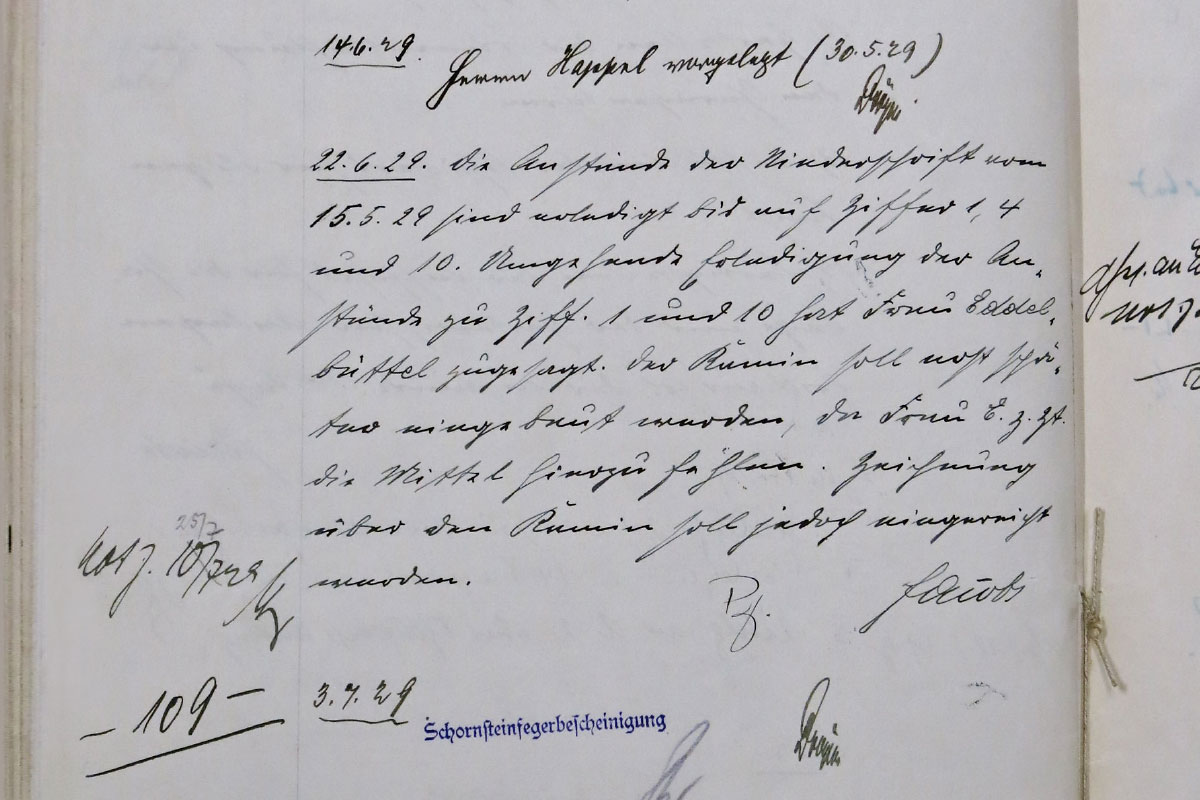 14.6.29.
Herrn Happel vorgelegt (30.5.29)
22.6.29. Die Anstände der Niederschrift vom
15.5.29 sind erledigt bis auf Ziffer 1, 4
und 10. Umgehende Erledigung der An-
stände zu Ziff. 1 und 10 hat Frau Eddel-
büttel zugesagt. Der Kamin soll erst spä-
ter eingebaut werden, da Frau E. z. Zt.
die Mittel hierzu fehlen. Zeichnung
über den Kamin soll jedoch eingereicht
werden.
Jacobs
25/7
Not z. 10/7 29
- 109 -
3.7.29
Schornsteinfegerbescheinigung